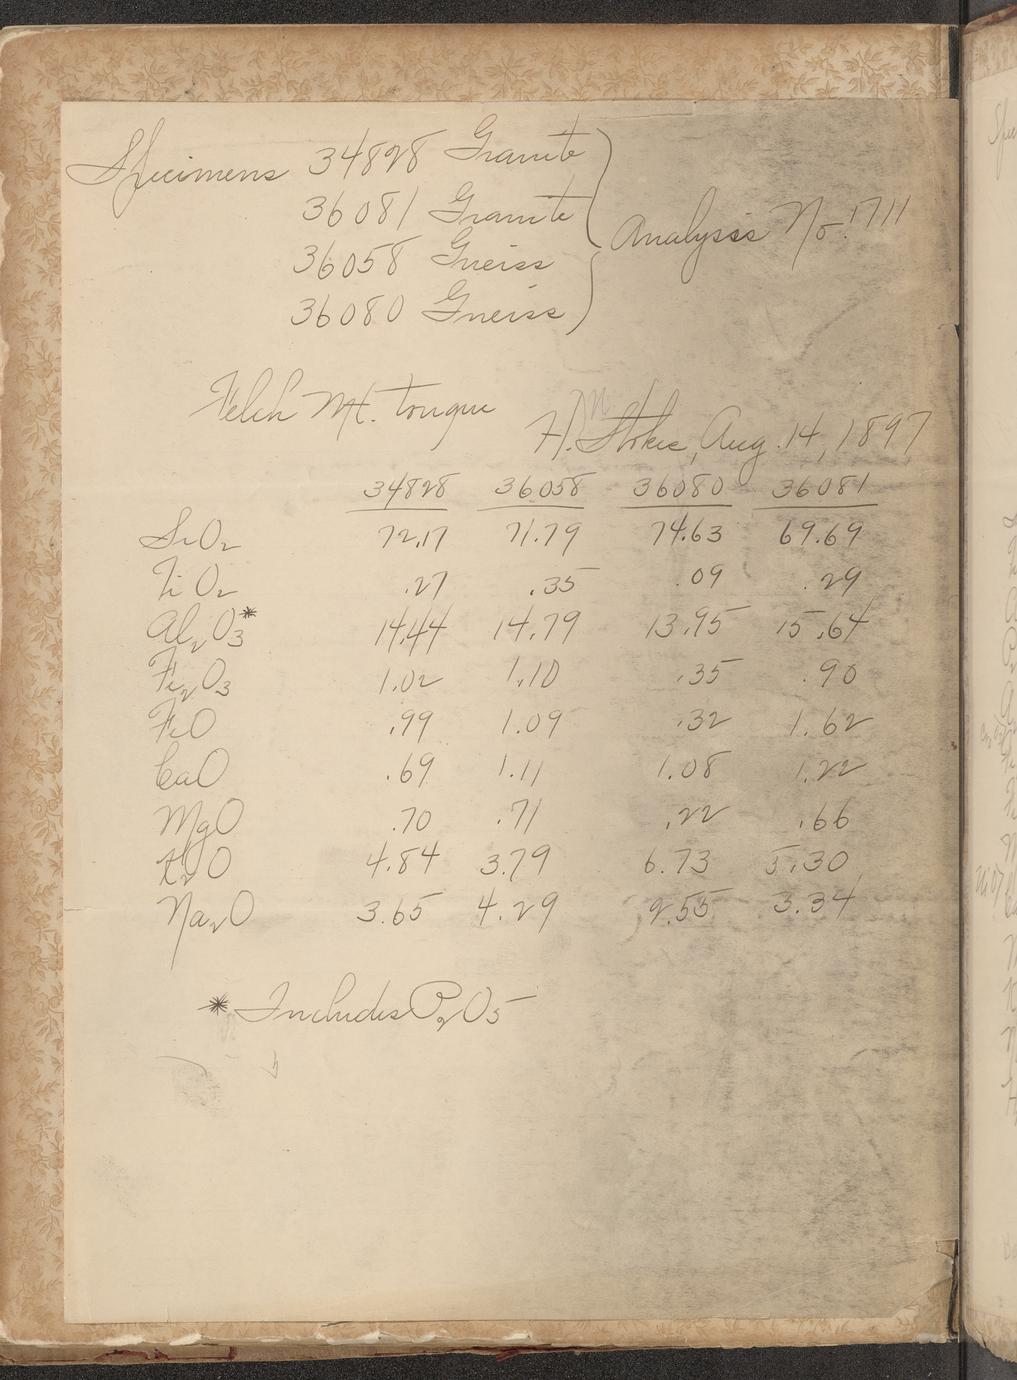 Specimens 34828 Granite
36081 Granite
36058 Gneiss
36080 Gneiss
Analysis No. 1711
Felch Mt. tongue
H. N. Stokes, Aug. 14, 1897
34828 36058 36080 36081
SiO2 72.17 71.79 74.63 69.69
TiO2 .27 .35 .09 .29
Al2O3* 14.44 14.79 13.95 15.64
Fe2O3 1.02 1.10 .35 .90
FeO .99 1.09 .32 1.62
CaO .69 1.11 1.08 1.22
MgO .70 .71 .22 .66
K2O 4.84 3.79 6.73 5.30
Na2O 3.65 4.29 2.55 3.34
* Includes P2O5